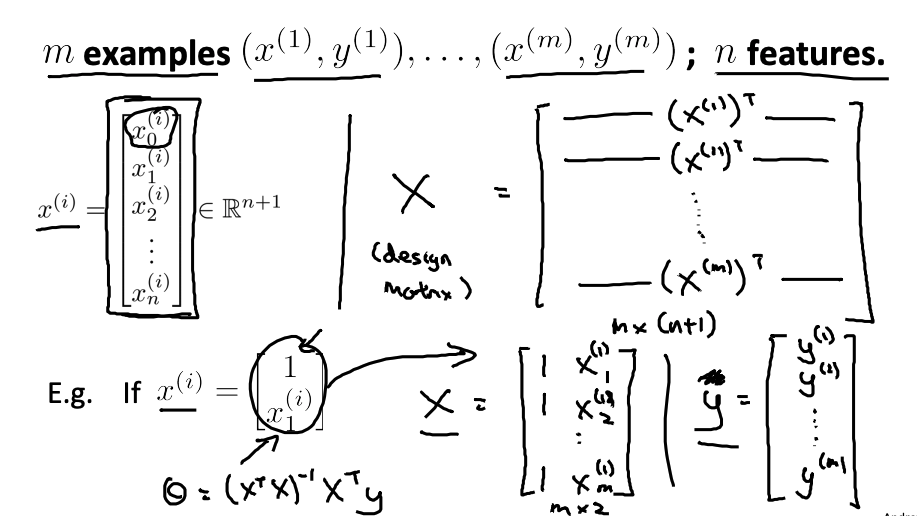 m examples (x^(1), y^(1)), ..., (x^(m), y^(m)) ; n features.
x^(i) = [x_0^(i) x_1^(i) x_2^(i) ⋮ x_n^(i)] ∈ ℝ^(n+1)
X = [— (x^(1))^T — — (x^(2))^T — ⋮ — (x^(m))^T —]
(design
matrix)
m x (n+1)
E.g. If x^(i) = [1 x_1^(i)]
X = [1 x_1^(1) 1 x_2^(1) ⋮ 1 x_m^(1)]
m x 2
y = [y^(1) y^(2) ⋮ y^(m)]
Θ = (X^T X)^-1 X^T y